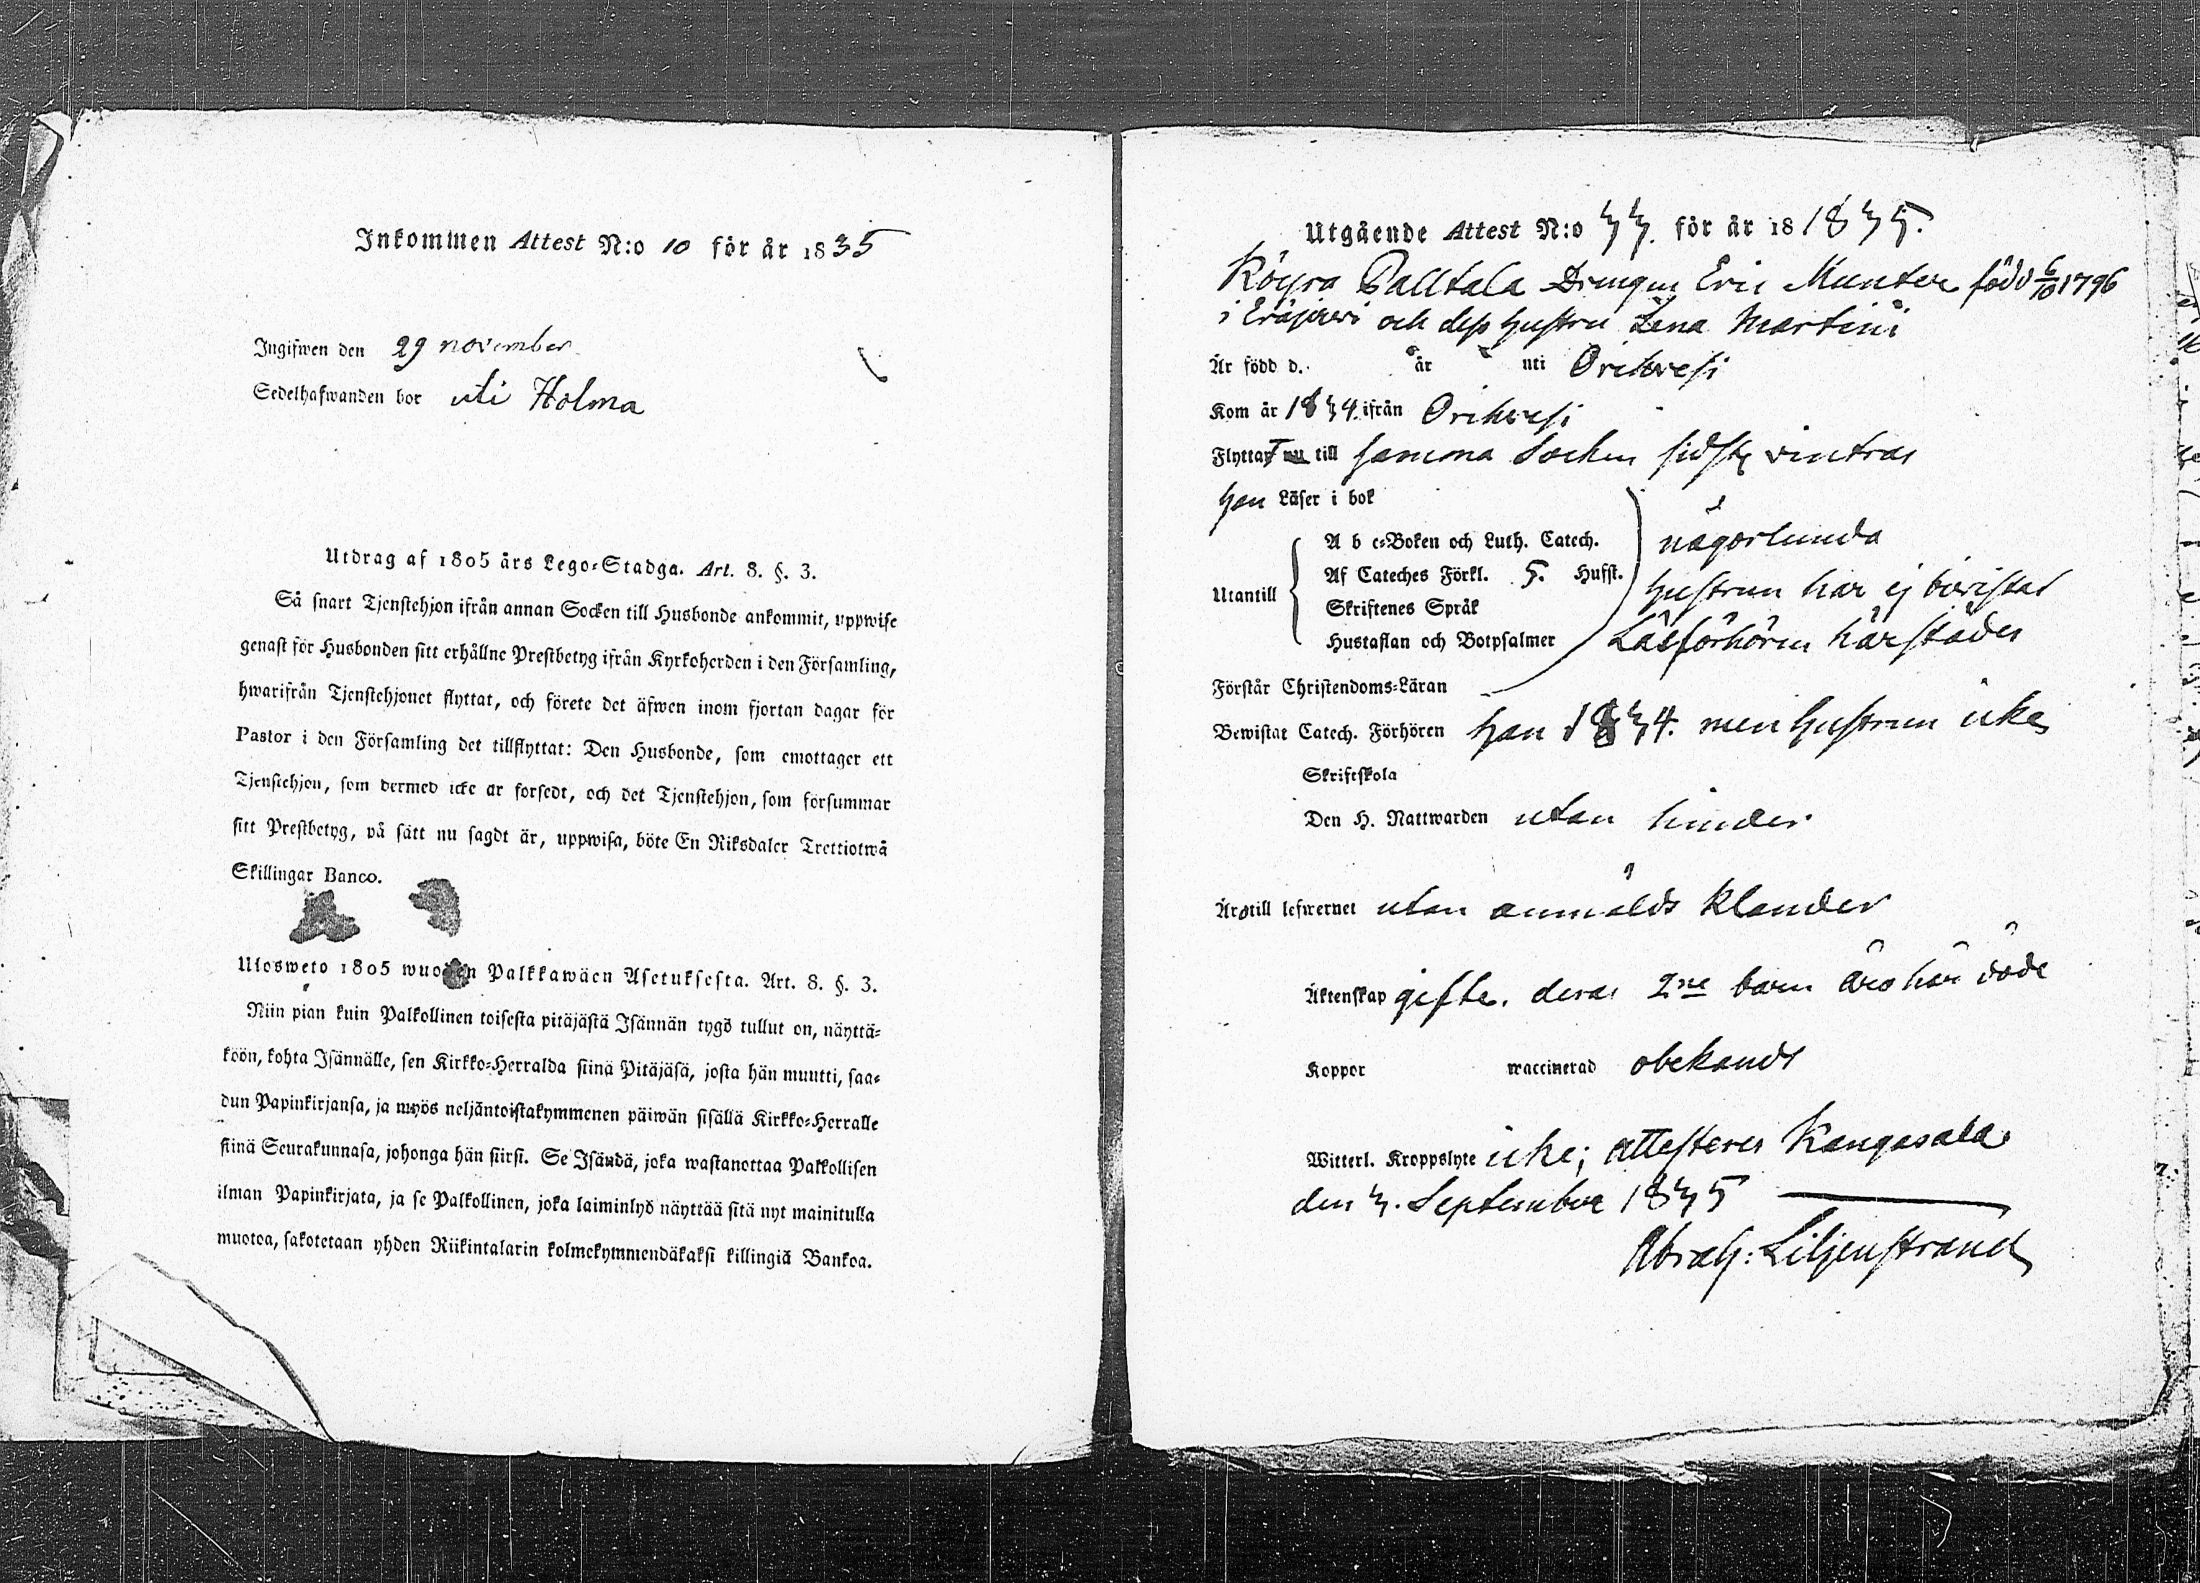 Inkommen Attest N:o 10 för år 1835
Ingifwen den 29 november
Sedelhafwanden bor uti Holma
Utdrag af 1805 års Lego-Stadga. Art. 8. §. 3.
Så snart Tjenstehjon ifrån annan Socken till Husbonde ankommit, uppwise
genast för Husbonden sitt erhållne Prestbetyg ifrån Kyrkoherden i den Församling,
hwarifrån Tjenstehjonet flyttat, och förete det äfwen inom fjortan dagar för
Pastor i den Församling det tillflyttat: Den Husbonde, som emottager ett
Tjenstehjon, som dermed icke är försedt, och det Tjenstehjon, som försummar
sitt Prestbetyg, på sätt nu sagdt är, uppwisa, böte En Riksdaler Trettiotwå
Skillingar Banco.
Ulosweto 1805 wuoden Palkkawäen Asetuksesta. Art. 8. §. 3.
Niin pian kuin Palkollinen toisesta pitäjästä Isännän tygö tullut on, näyttä-
köön, kohta Isännälle, sen Kirkko-Herralda siinä Pitäjäsä, josta hän muutti, saa-
dun Papinkirjansa, ja myös neljäntoistakymmenen päiwän sisällä Kirkko-Herralle
siinä Seurakunnasa, johonga hän siirsi. Se Isändä, joka wastanottaa Palkollisen
ilman Papinkirjata, ja se Palkollinen, joka laiminlyö näyttää sitä nyt mainitulla
muotoa, sakotetaan yhden Riikintalarin kolmekymmendäkaksi killingiä Bankoa.
Utgående Attest N:o 33. för år 18 1835.
Köyra Palltala Drengen Eric Munter född 6/10 1796
i Eräjärvi och dess hustru Lena Martini
Är född d. år uti Orihvesi
Kom år 1834. ifrån Orihvesi
Flyttat nu till samma Socken sidste vintras
han Läser i bok
A b c-Boken och Luth. Catech. någorlunda
Utantill Af Cateches Förkl. 5. Hufst. hustrun har ej bevistat
Skriftenes Språk
Hustaflan och Botpsalmer Läsförhören härstädes
Förstår Christendoms-Läran
Bewistat Catech. Förhören han 1834. men hustrun icke
Skriftskola
Den H. Nattwarden utan hinder
Äro till lefwernet utan anmäldt klander
Äktenskap gifte. deras 2ne barn äro här döde
Koppor waccinerad obekandt
Witterl. Kroppslyte icke; attesteres Kangasala
den 3. September 1835
Abrah: Liljenstrand